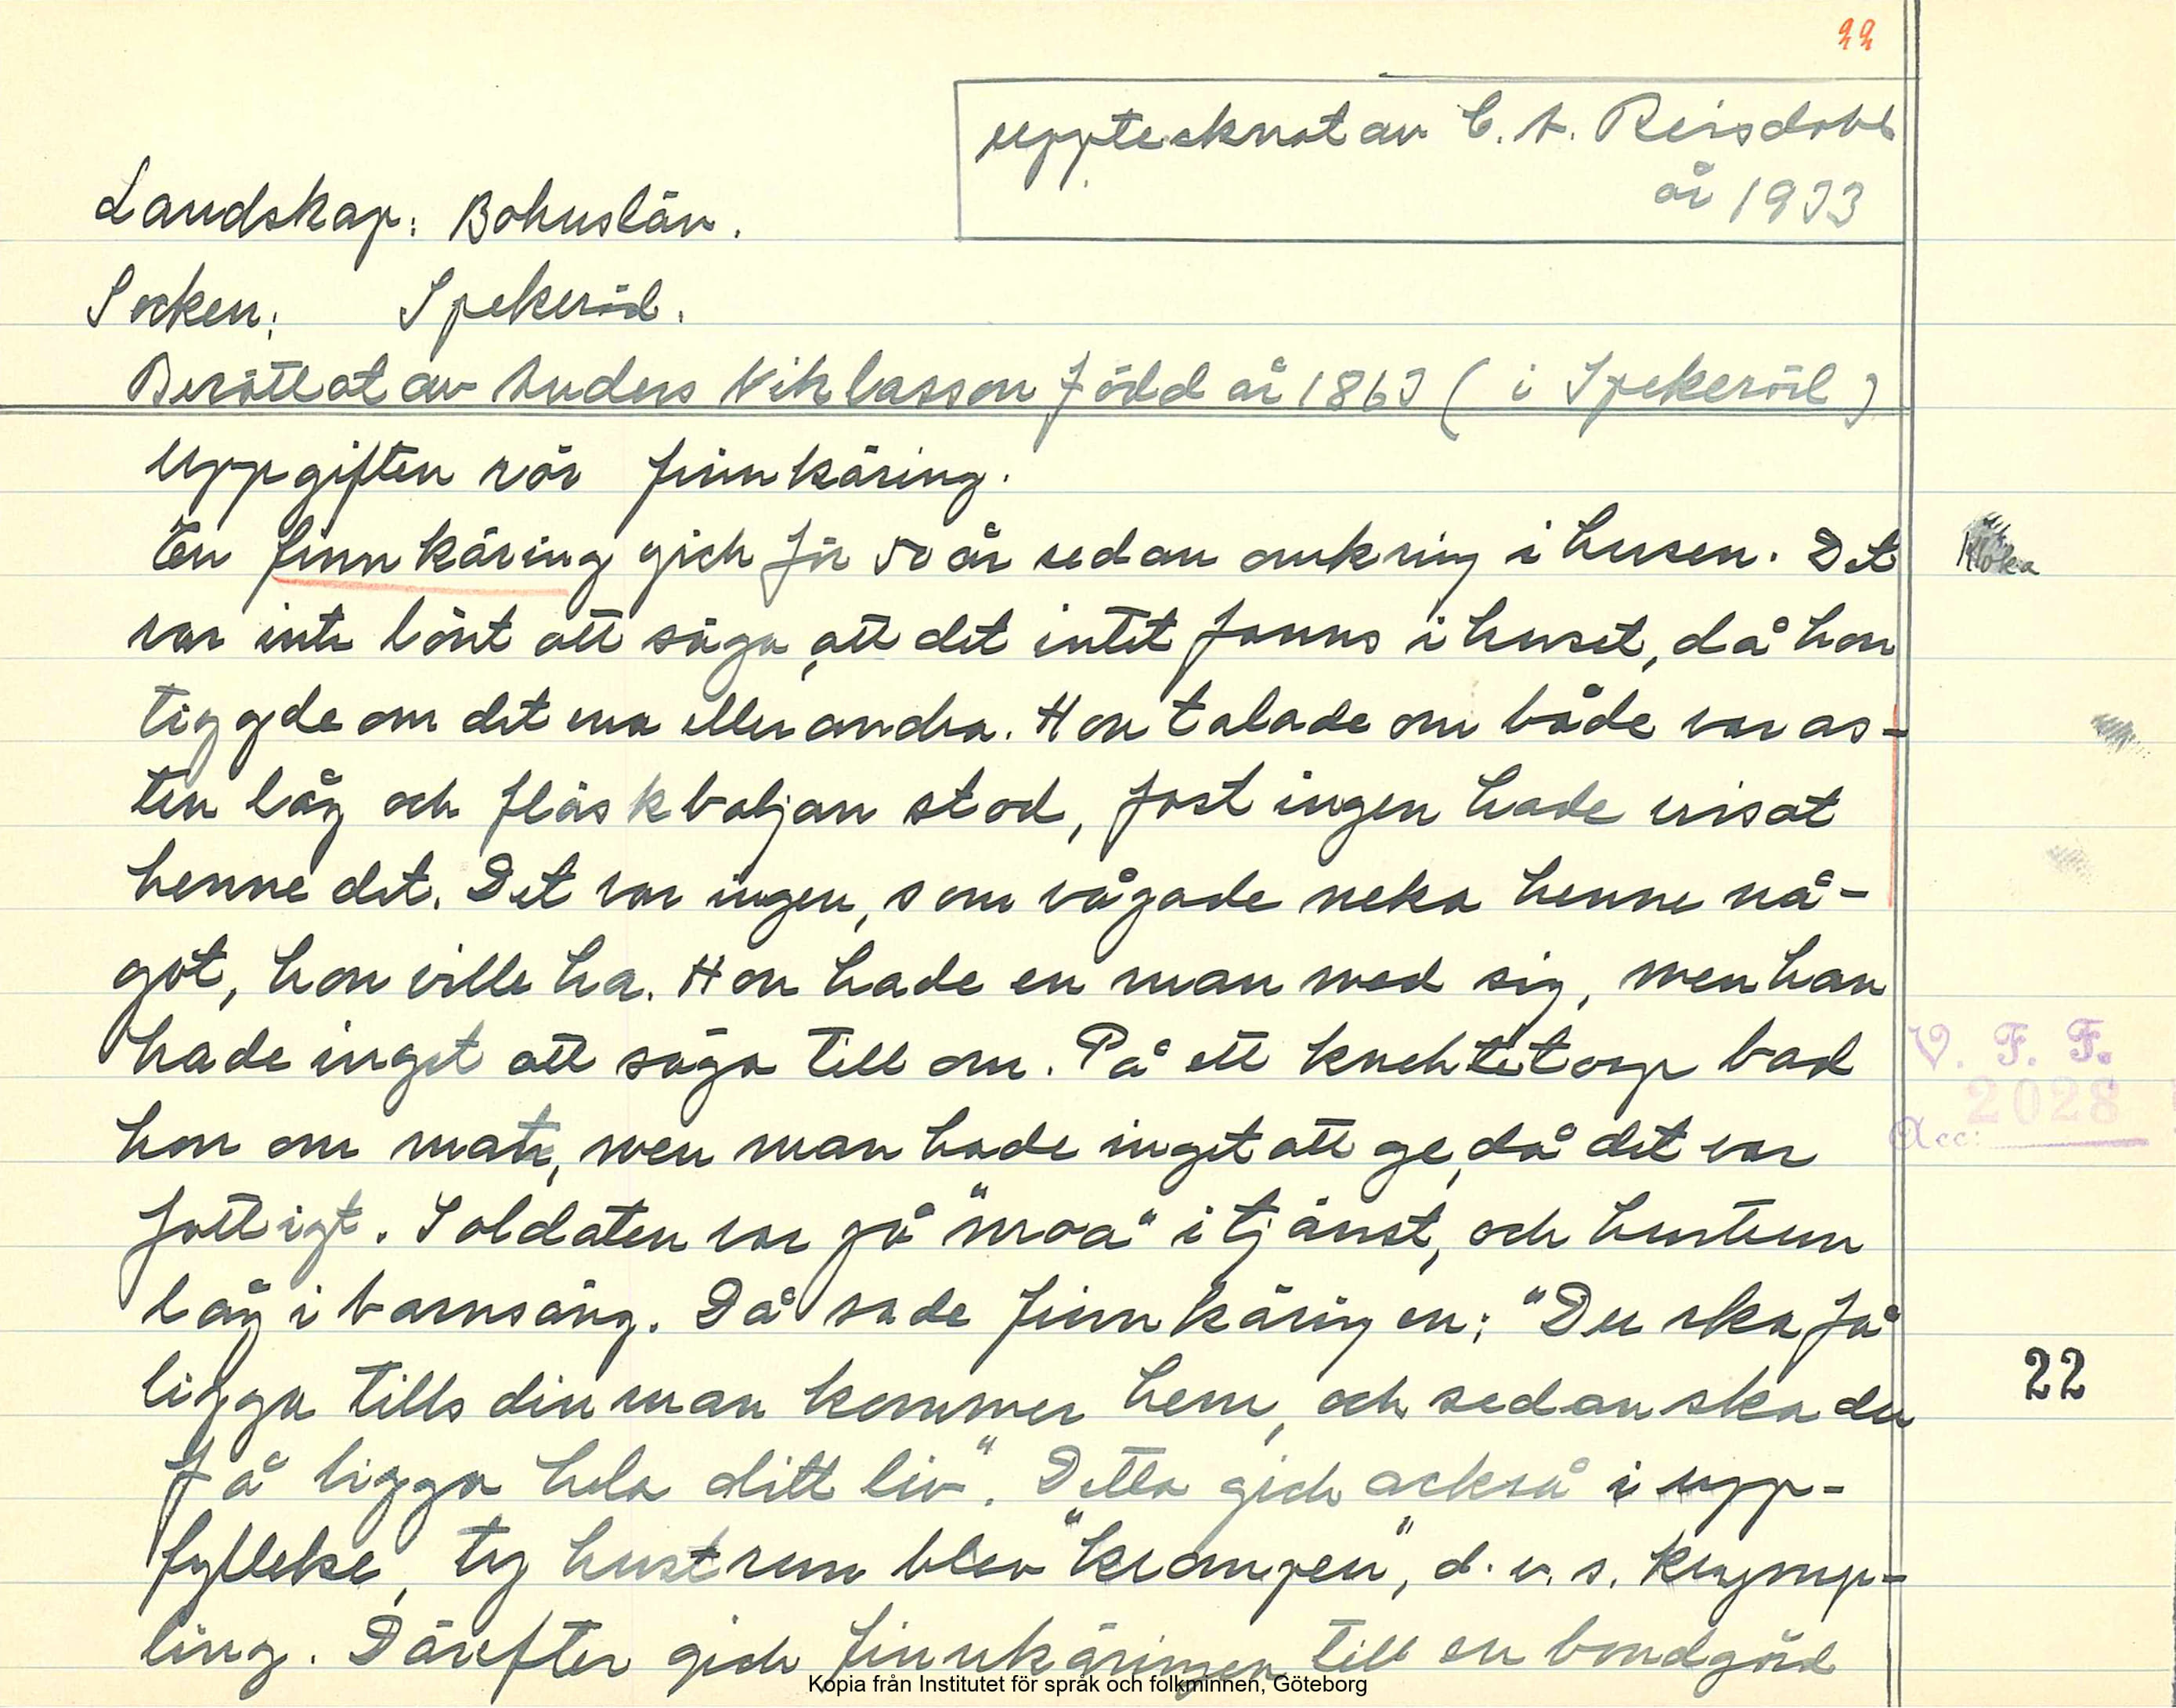 22
Upptecknat av C. A. Reisdahl
år 1933
Landskap: Bohuslän.
Socken: Spekeröd.
Berättat av Anders Niklasson född år 1863 (i Spekeröd)
Uppgiften rör finnkäring.
En finnkäring gick för 50 år sedan omkring i husen. Det
Kloka
var inte lönt att säga, att det intet fanns i huset, då hon
tiggde om det ena eller andra. Hon talade om både var os-
ten låg och fläskbaljan stod, fast ingen hade visat
henne det. Det var ingen, som vågade neka henne nå-
got, hon ville ha. Hon hade en man med sig, men han
hade inget att säga till om. På ett knektetorp bad
V. F. F.
2028
Acc:
hon om mat, men man hade inget att ge, då det var
fattigt. Soldaten var på "moa" i tjänst, och hustrun
låg i barnsäng. Då sade finnkäringen: "Du ska få
ligga tills din man kommer hem, och sedan ska du
22
få ligga hela ditt liv". Detta gick också i upp-
fyllelse, ty hustrun blev "krampen", d. v. s. krymp-
ling. Därefter gick finnkäringen till en bondgård
Kopia från Institutet för språk och folkminnen, Göteborg